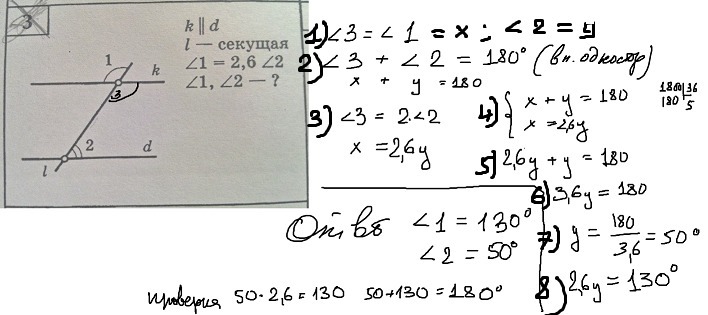 3
k ∥ d
l — секущая
∠1 = 2,6 ∠2
∠1, ∠2 — ?
1
k
3
2
d
l
1) ∠3 = ∠1 = x ; ∠2 = y
2) ∠3 + ∠2 = 180° (вн. одностор)
x + y = 180
3) ∠3 = 2.∠2
x = 2,6y
4) { x + y = 180
x = 2,6y
1800 | 36
180 5
5) 2,6y + y = 180
6) 3,6y = 180
7) y = 180/3,6 = 50°
8) 2,6y = 130°
Ответ ∠1 = 130°
∠2 = 50°
проверка 50·2,6 = 130 50+130 = 180°